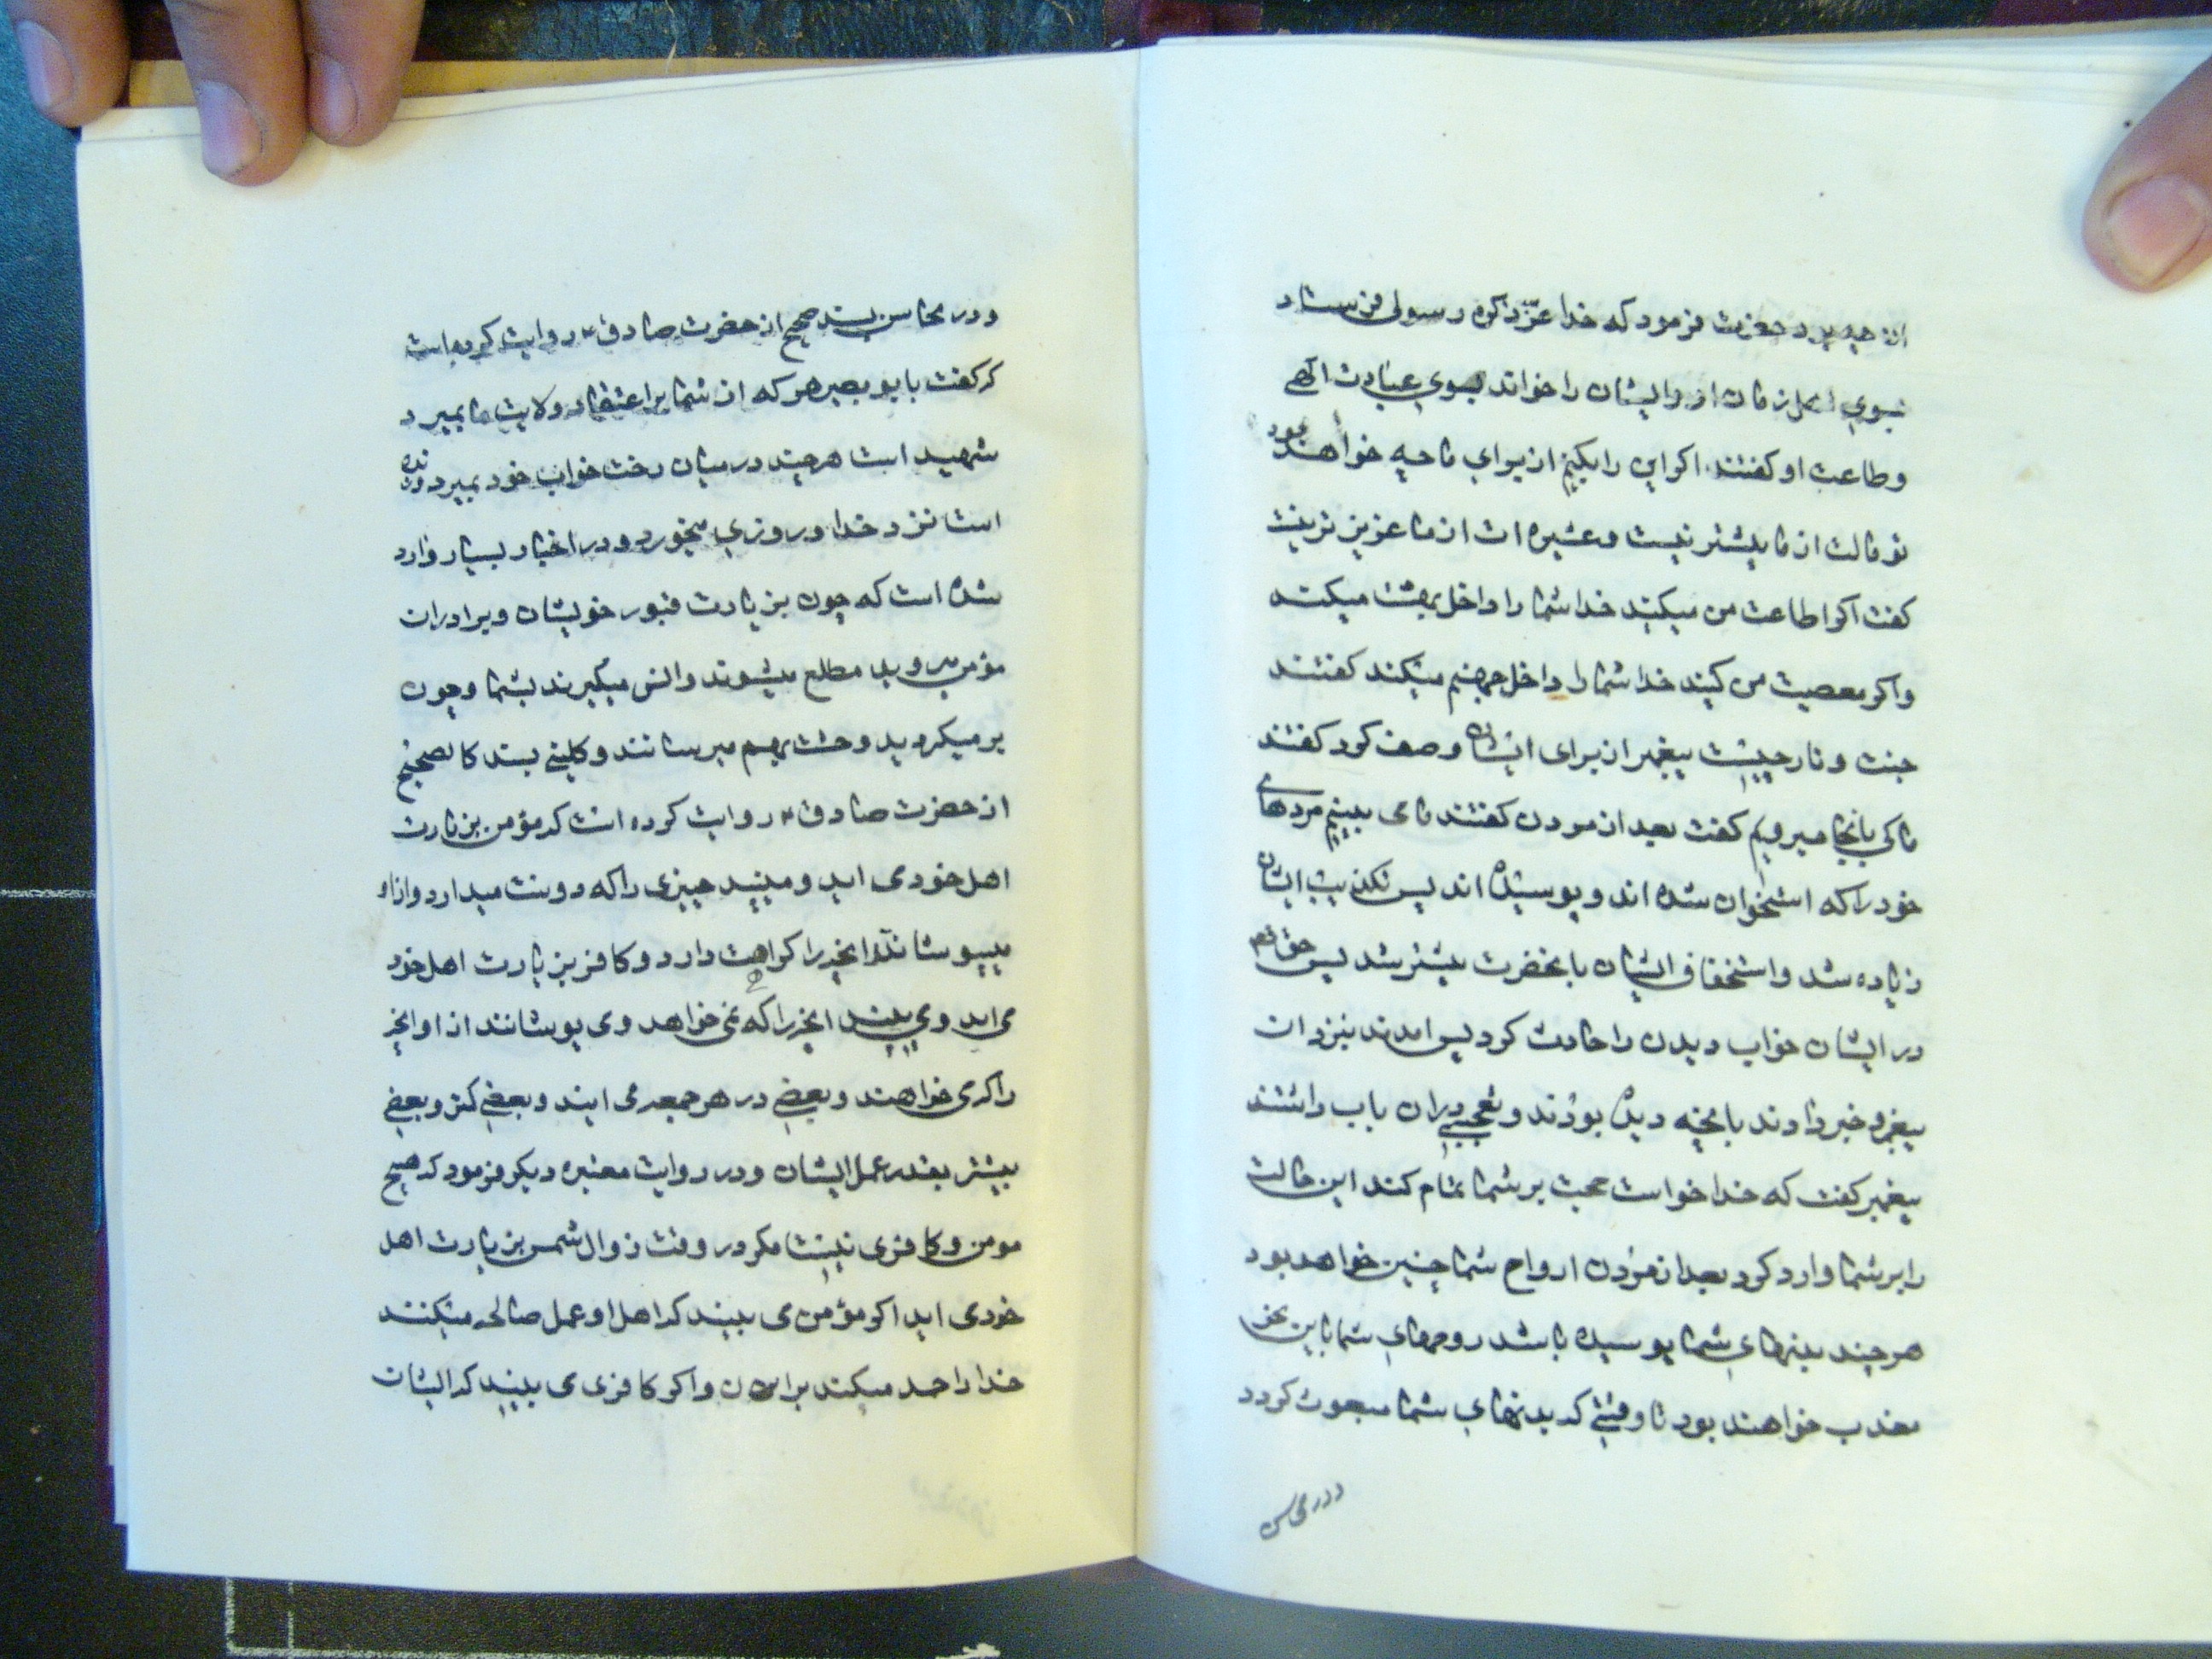 از چه بود حضرت فرمود که خدا عزّ ذکره رسولی فرستاد
بسوی اهل زمان او و ایشان را خواند بسوی عبادت الهی
و طاعت او گفتند اگر این را بکنیم از برای ما چه خواهد بود
تو مالت از ما بیشتر نیست و عشیره ات از ما عزیز تر نیست
گفت اگر اطاعت من میکنید خدا شما را داخل بهشت میکند
و اگر معصیت من کنید خدا شما را داخل جهنم میکند گفتند
جنت و نار چیست پیغمبر از برای ایشان وصف کرد گفتند
ما کی بانجا میرویم گفت بعد از مردن گفتند ما می بینیم مردهای
خود را که استخوان شده اند و پوسیده اند پس تکذیب ایشان
زیاده شد و استخفاف ایشان بانحضرت بیشتر شد پس حق تعم
در ایشان خواب دیدن را حادث کرد پس امدند بنزد ان
پیغمبر و خبر دادند بانچه دیده بودند و تعجبی دران باب داشتند
پیغمبر گفت که خدا خواست حجت بر شما تمام کند این حالت
را بر شما وارد کرد بعد از مردن ارواح شما چنین خواهد بود
هر چند بدنهای شما پوسیده باشد روحهای شما باین نحو
معذب خواهند بود تا وقتی که بدنهای شما مبعوث گردد
و در محاسن
و در محاسن بسند صحیح از حضرت صادق ع روایت کرده است
که گفت بابو بصیر هر که از شما بر اعتقاد ولایت ما بمیرد
شهید است هر چند در میان رخت خواب خود بمیرد و زنده
است نزد خدا و روزی میخورد و در اخبار بسیار وارد
شده است که چون بزیارت قبور خویشان و برادران
مؤمن میروید مطلع میشوند و انس میگیرند بشما و چون
بر میگردید وحشت بهم میرسانند و کلینی بسند کالصحیح
از حضرت صادق ع روایت کرده است که مؤمن بزیارت
اهل خود می اید و میبیند چیزی را که دوست میدارد و از او
میپوشانند انچه را کراهت دارد و کافر بزیارت اهل خود
می اید و می بیند انچه را که نمی خواهد و می پوشانند از او انچه
را که می خواهند و بعضی در هر جمعه می ایند و بعضی کمتر و بعضی
بیشتر بقدر عمل ایشان و در روایت معتبره دیگر فرمود که هیچ
مومن و کافری نیست مگر در وقت زوال شمس بزیارت اهل
خود می اید اگر مؤمن می بیند که اهل او عمل صالحه میکنند
خدا را حمد میکند بر ان و اگر کافری می بیند که ایشان